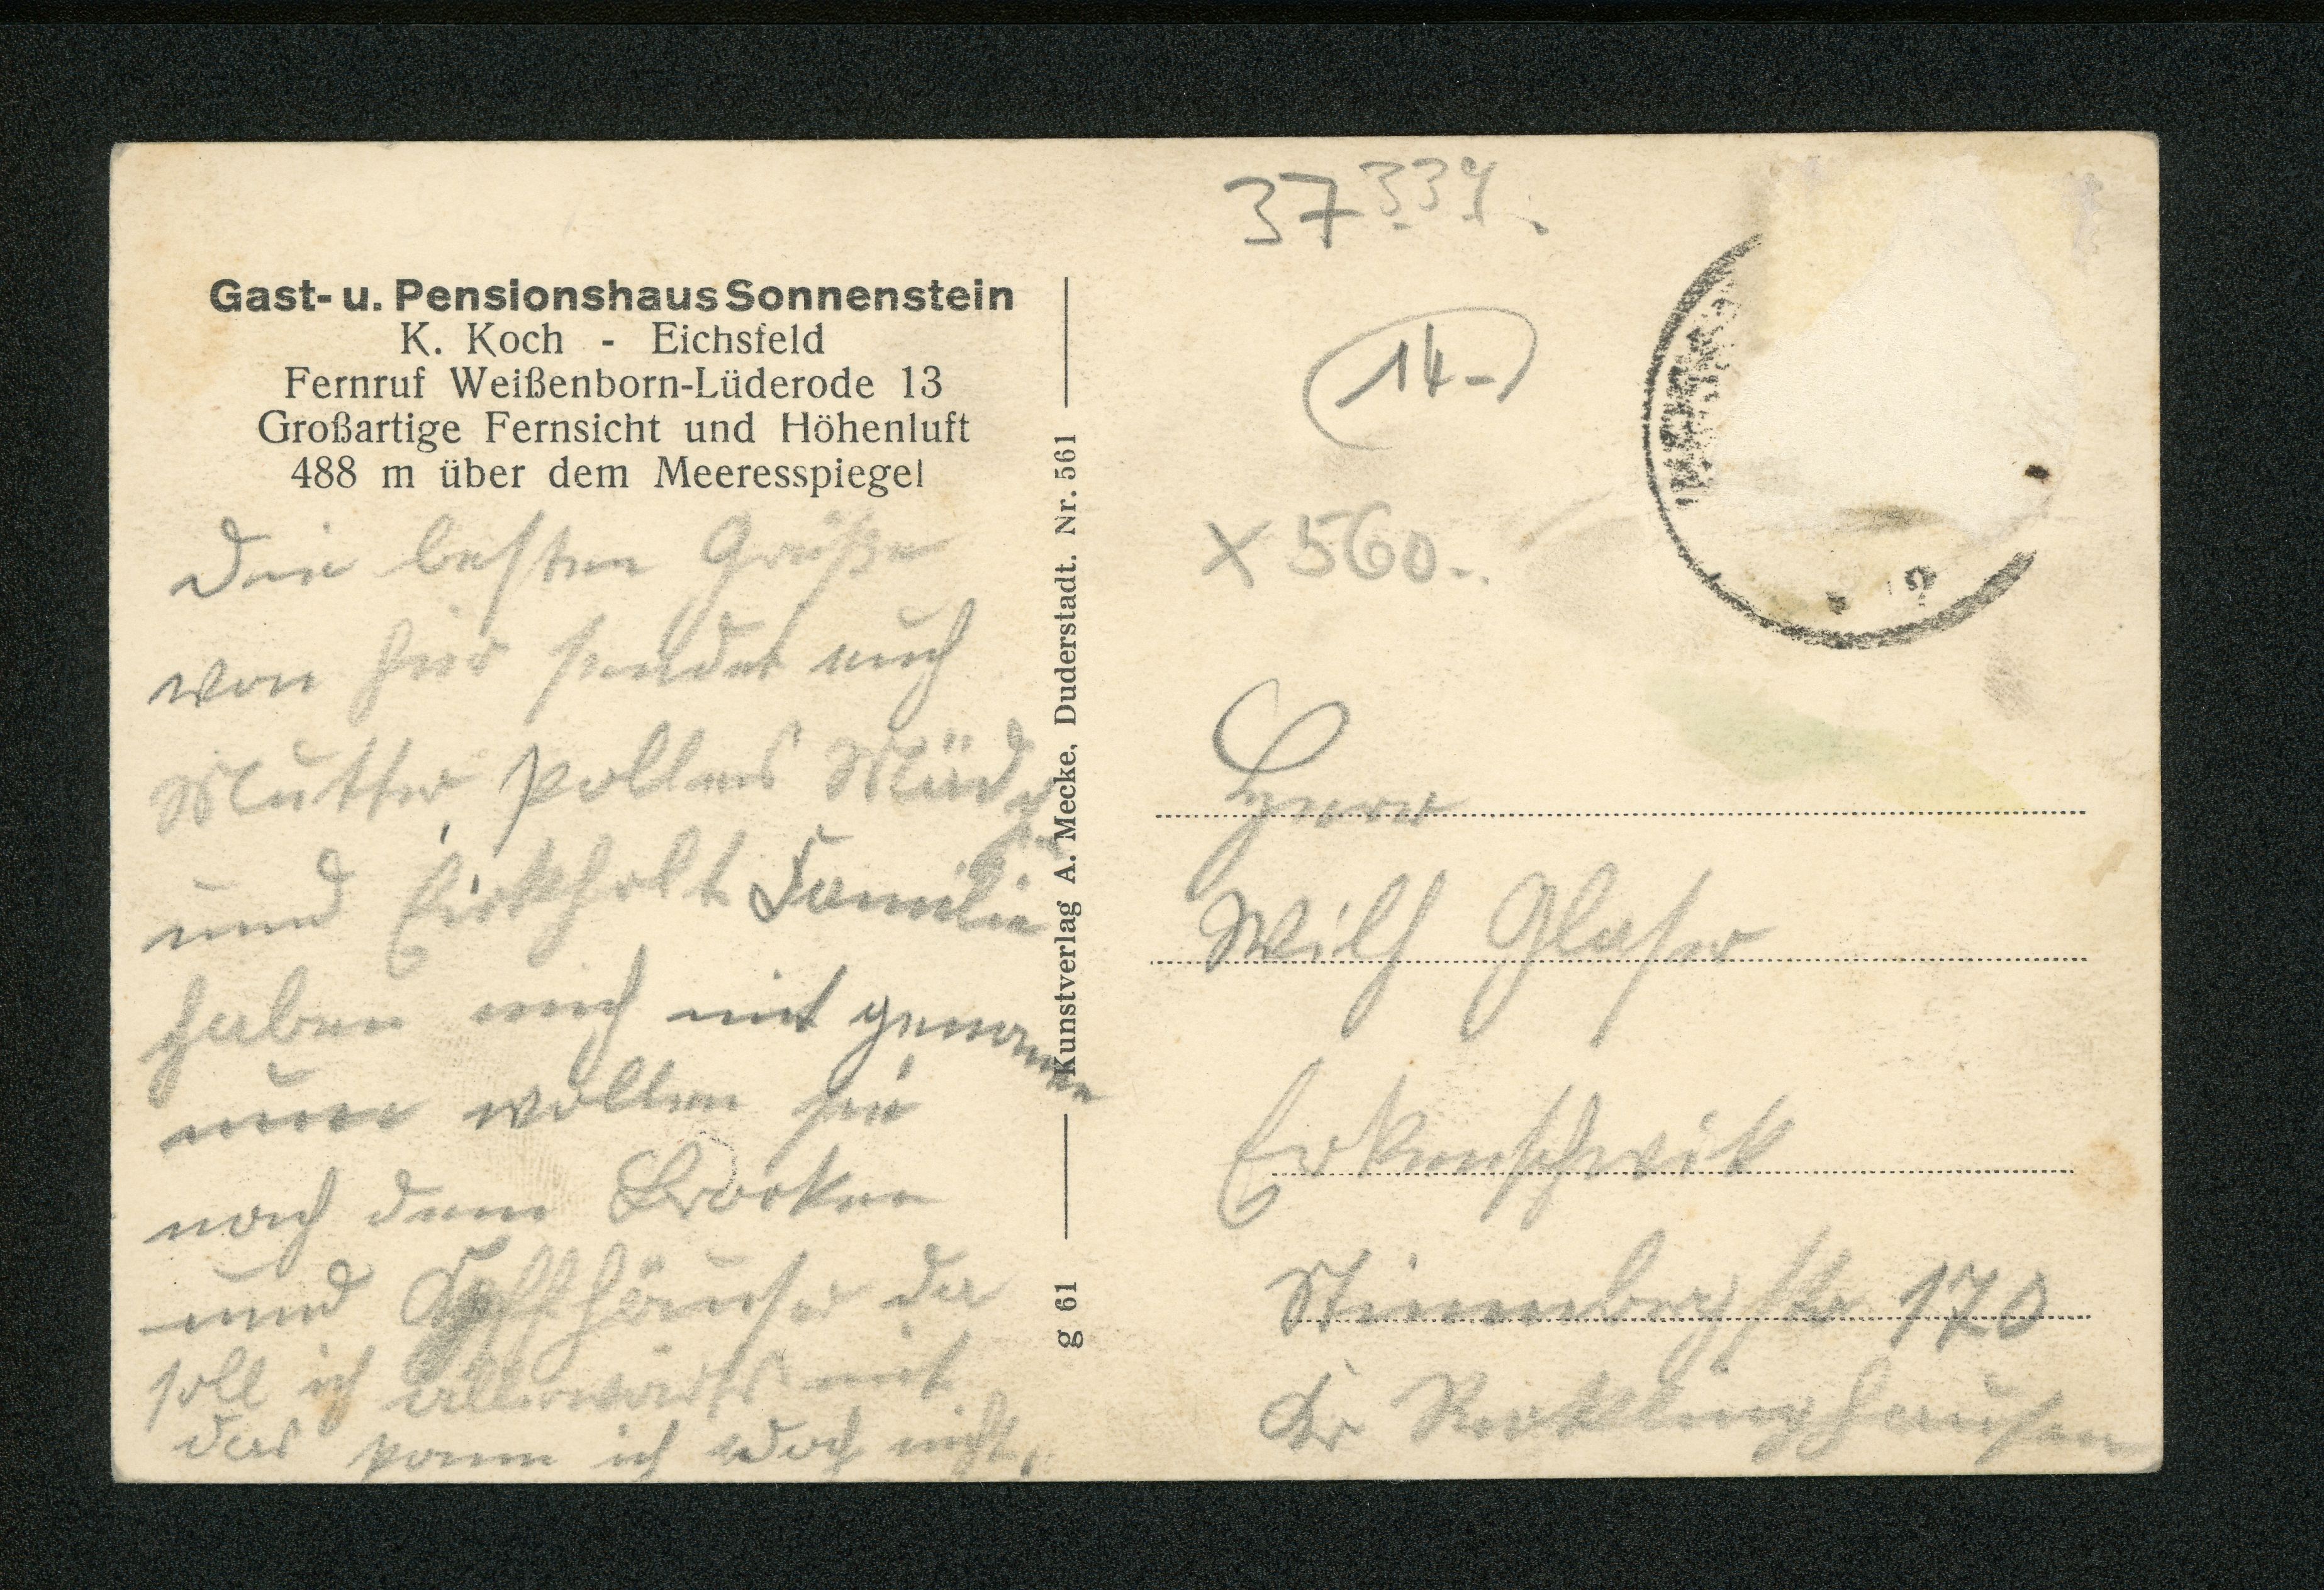 Gast- u. Pensionshaus Sonnenstein
K. Koch - Eichsfeld
Fernruf Weißenborn-Lüderode 13
Großartige Fernsicht und Höhenluft
488 m über dem Meeresspiegel
Die besten Grüße
von hier sendet euch
Mutter,
und Familie
haben mich mit genommen
nun wollen sie
noch dem Brocken
und Kyffhäuser da
soll ich allerwärts mit
das kann ich doch nicht,
Kunstverlag A. Mecke, Duderstadt. Nr. 561
g 61
37334.
14-
x 560.-
Herrn
Wilh Glaser
Erkenschwik
Stimmbergstr 170
Kr Recklinghausen